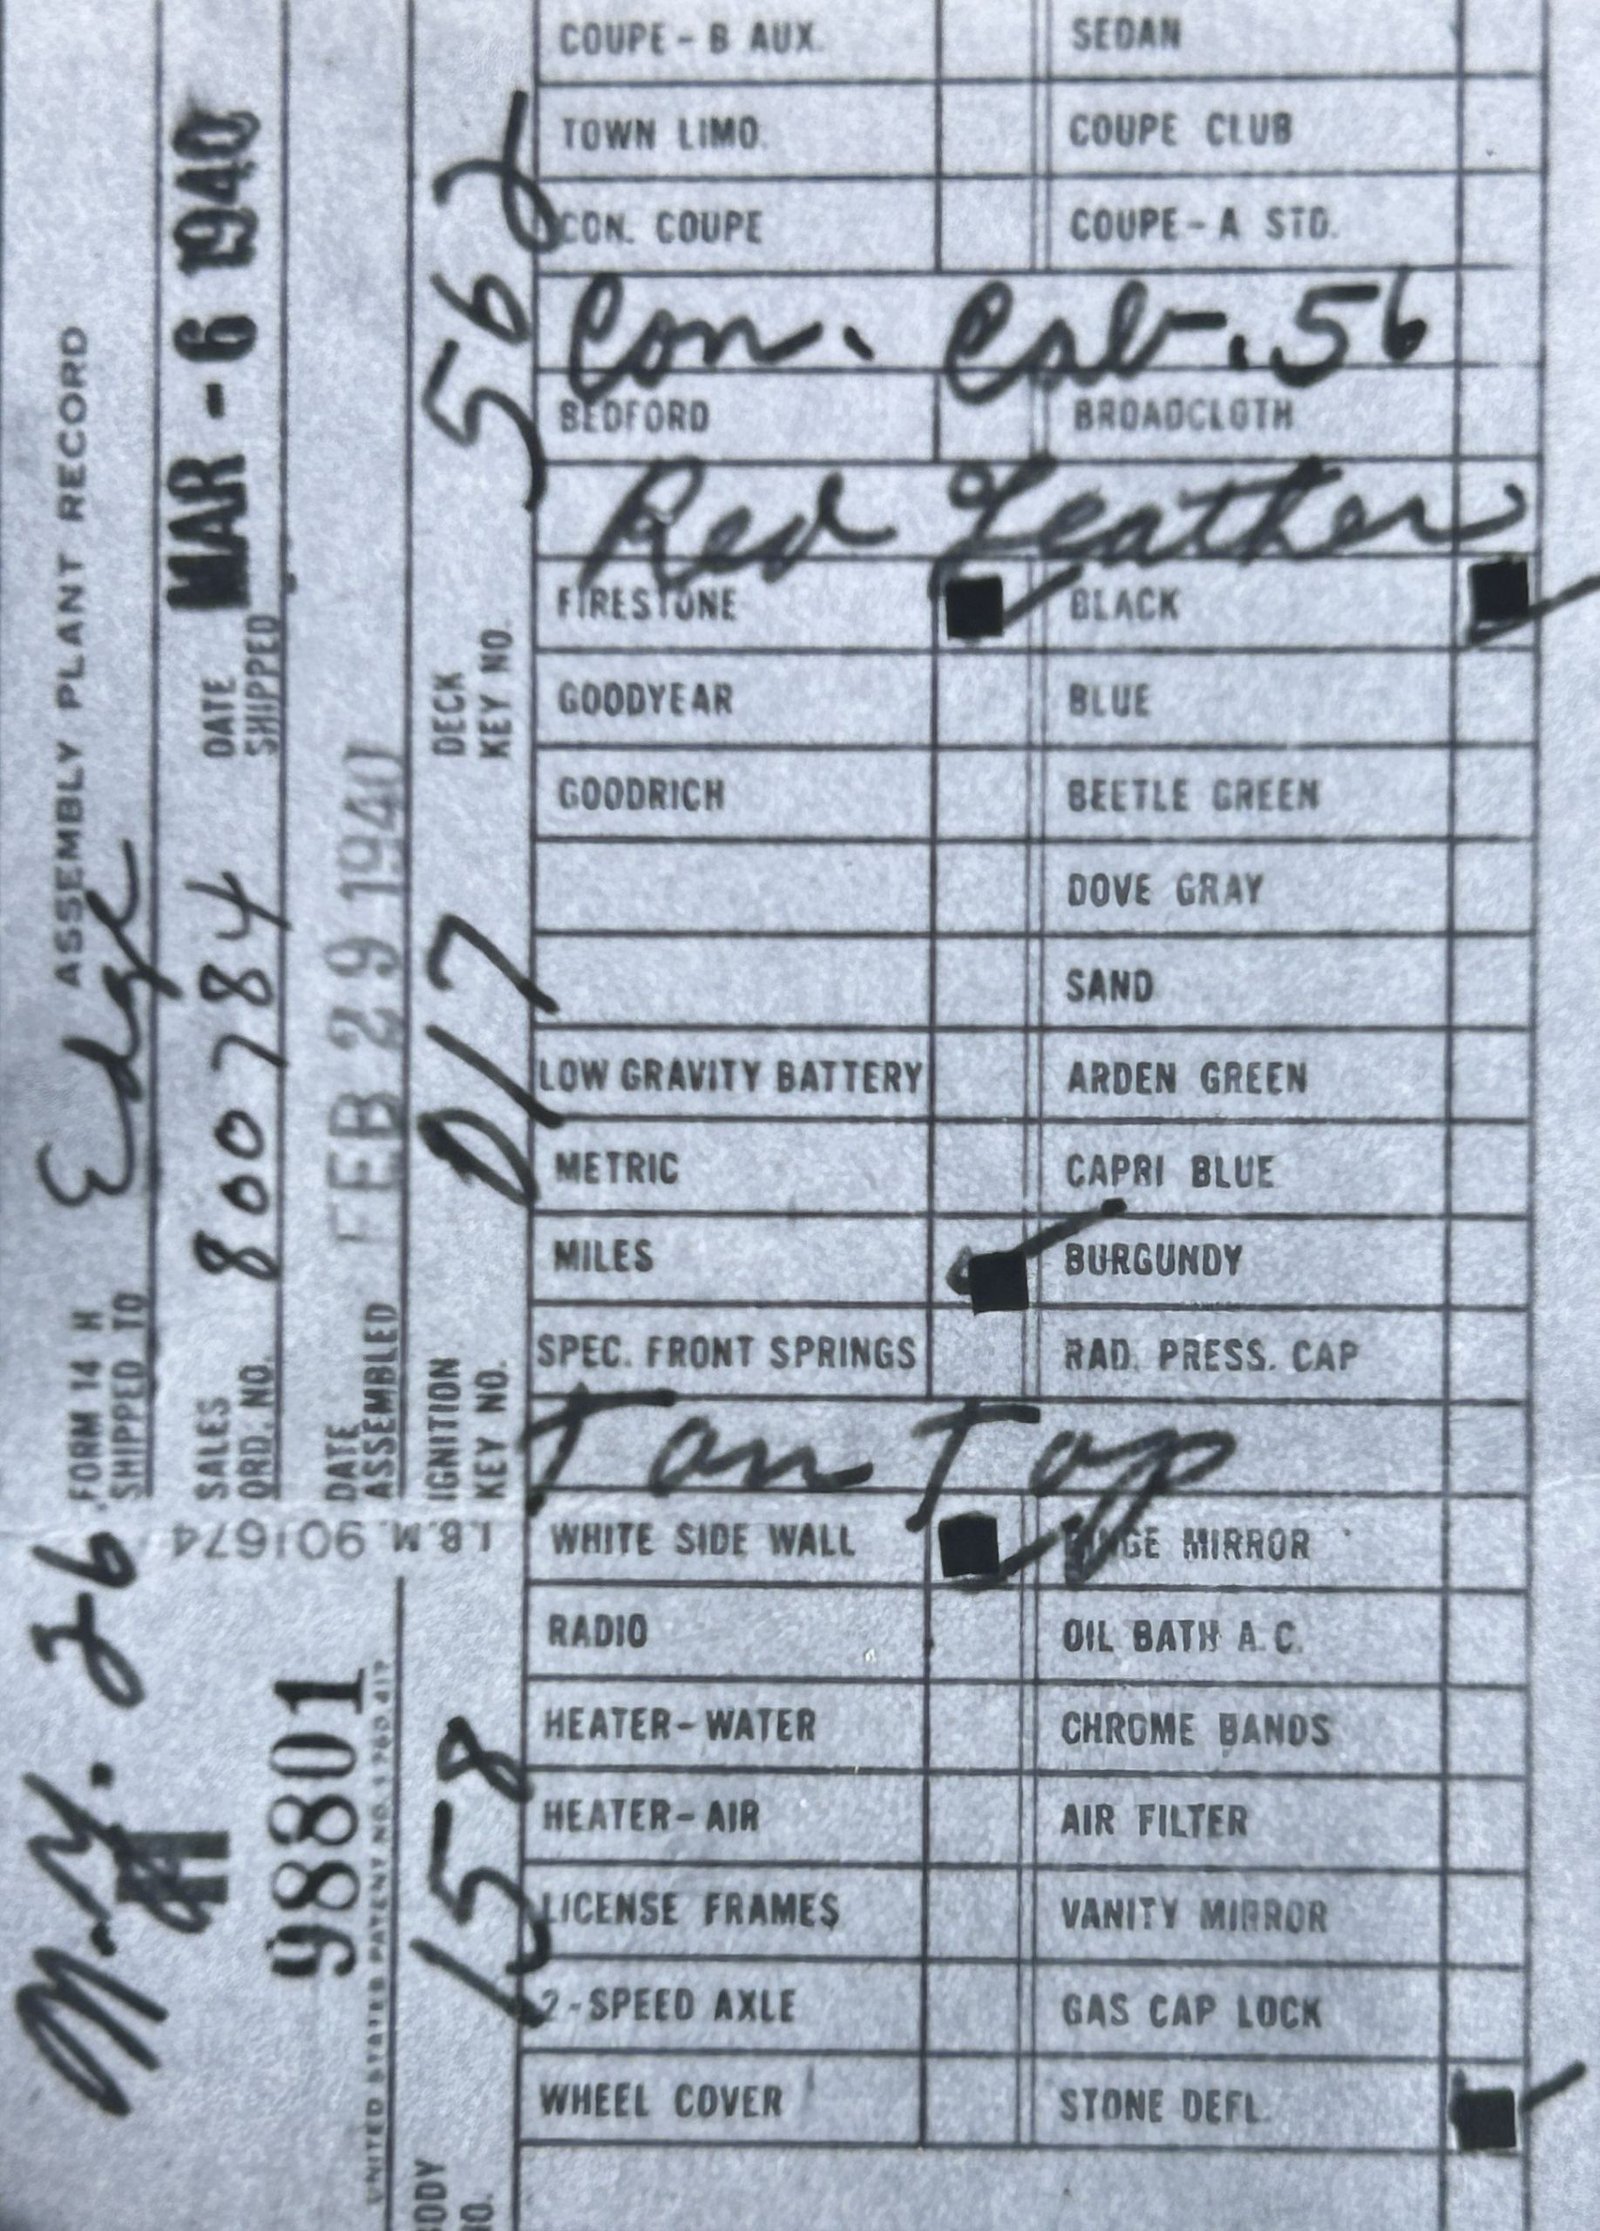 ASSEMBLY PLANT RECORD
FORM 14 H
SHIPPED TO Edge
SALES ORD. NO. 800784
DATE SHIPPED MAR - 6 1940
DATE ASSEMBLED FEB 29 1940
IGNITION KEY NO. D117
DECK KEY NO.
I.B.M. 901674
N.Y. 26
9801
UNITED STATES PATENT NO. 1,760,417
BODY NO. 158
COUPE-B AUX. SEDAN
TOWN LIMO. COUPE CLUB
CON. COUPE COUPE-A STD.
Con. Cab. 56
BEDFORD BROADCLOTH
Red Leather
FIRESTONE BLACK
GOODYEAR BLUE
GOODRICH BEETLE GREEN
DOVE GRAY
SAND
LOW GRAVITY BATTERY ARDEN GREEN
METRIC CAPRI BLUE
MILES BURGUNDY
SPEC. FRONT SPRINGS RAD. PRESS. CAP
Tan Top
WHITE SIDE WALL MIRROR
RADIO OIL BATH A.C.
HEATER-WATER CHROME BANDS
HEATER-AIR AIR FILTER
LICENSE FRAMES VANITY MIRROR
2-SPEED AXLE GAS CAP LOCK
WHEEL COVER STONE DEFL.